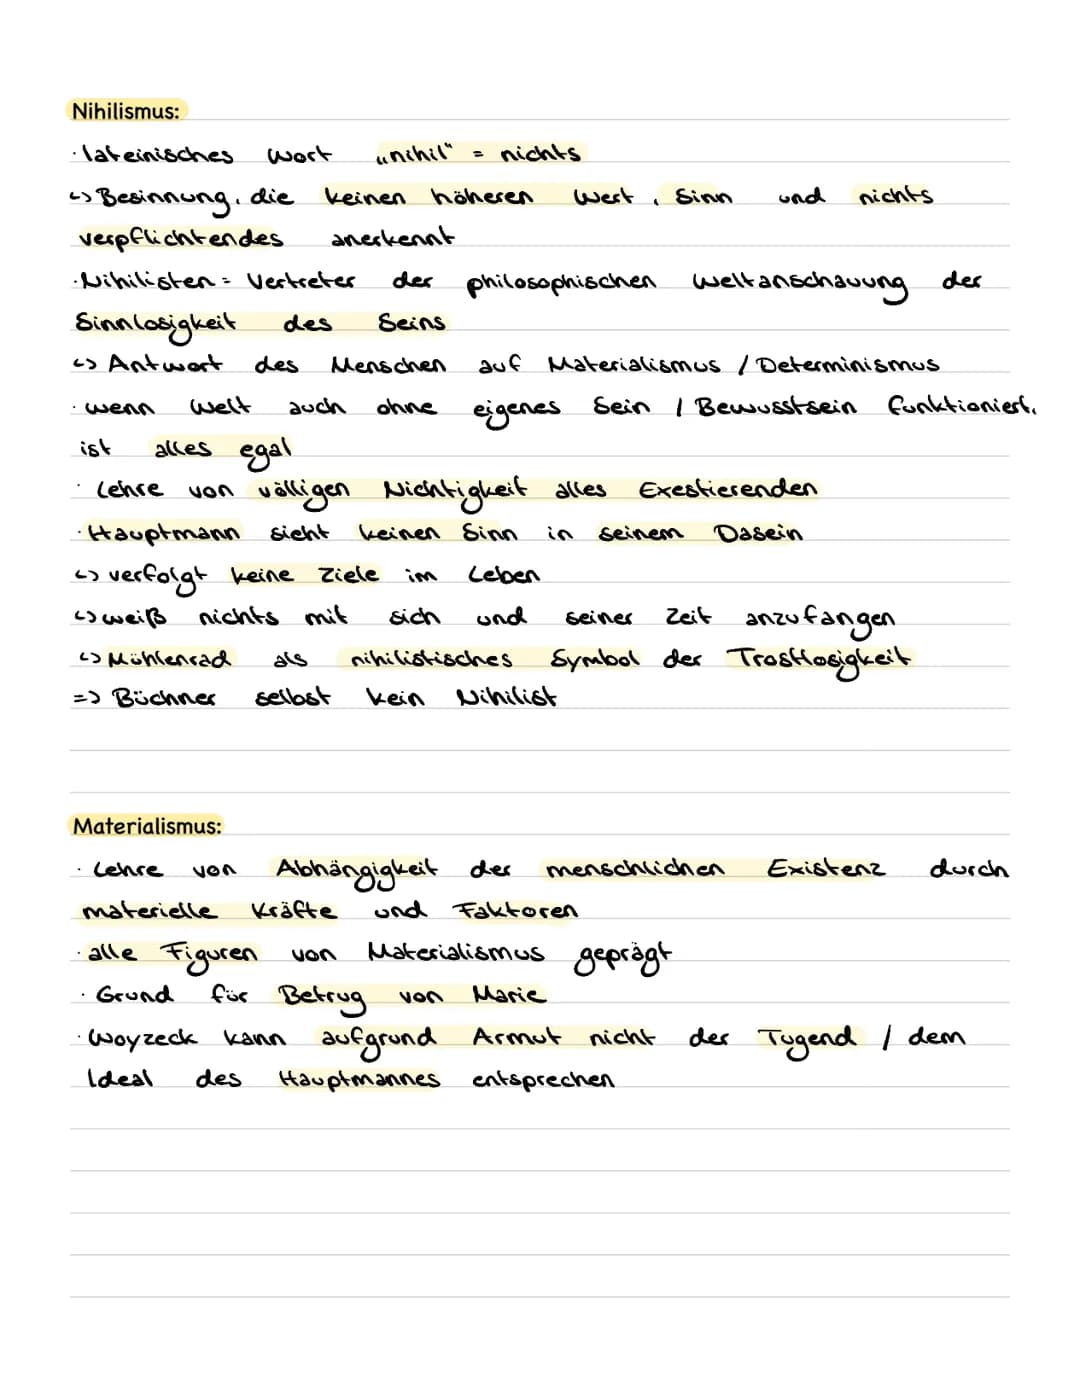 Nihilismus:
· lateinisches Wort „nihil“ = nichts
↳ Besinnung, die keinen höheren Wert, Sinn und nichts
verpflichtendes anerkennt
· Nihilisten = Vertreter der philosophischen Weltanschauung der
Sinnlosigkeit des Seins
↳ Antwort des Menschen auf Materialismus / Determinismus
· wenn Welt auch ohne eigenes Sein / Bewusstsein funktioniert,
ist alles egal
· Lehre von völligen Nichtigkeit alles Exestierenden
· Hauptmann sieht keinen Sinn in seinem Dasein
↳ verfolgt keine Ziele im Leben
↳ weiß nichts mit sich und seiner Zeit anzufangen
↳ Mühlenrad als nihilistisches Symbol der Trostlosigkeit
=> Büchner selbst kein Nihilist
Materialismus:
· Lehre von Abhängigkeit der menschlichen Existenz durch
materielle Kräfte und Faktoren
· alle Figuren von Materialismus geprägt
· Grund für Betrug von Marie
· Woyzeck kann aufgrund Armut nicht der Tugend / dem
Ideal des Hauptmannes entsprechen